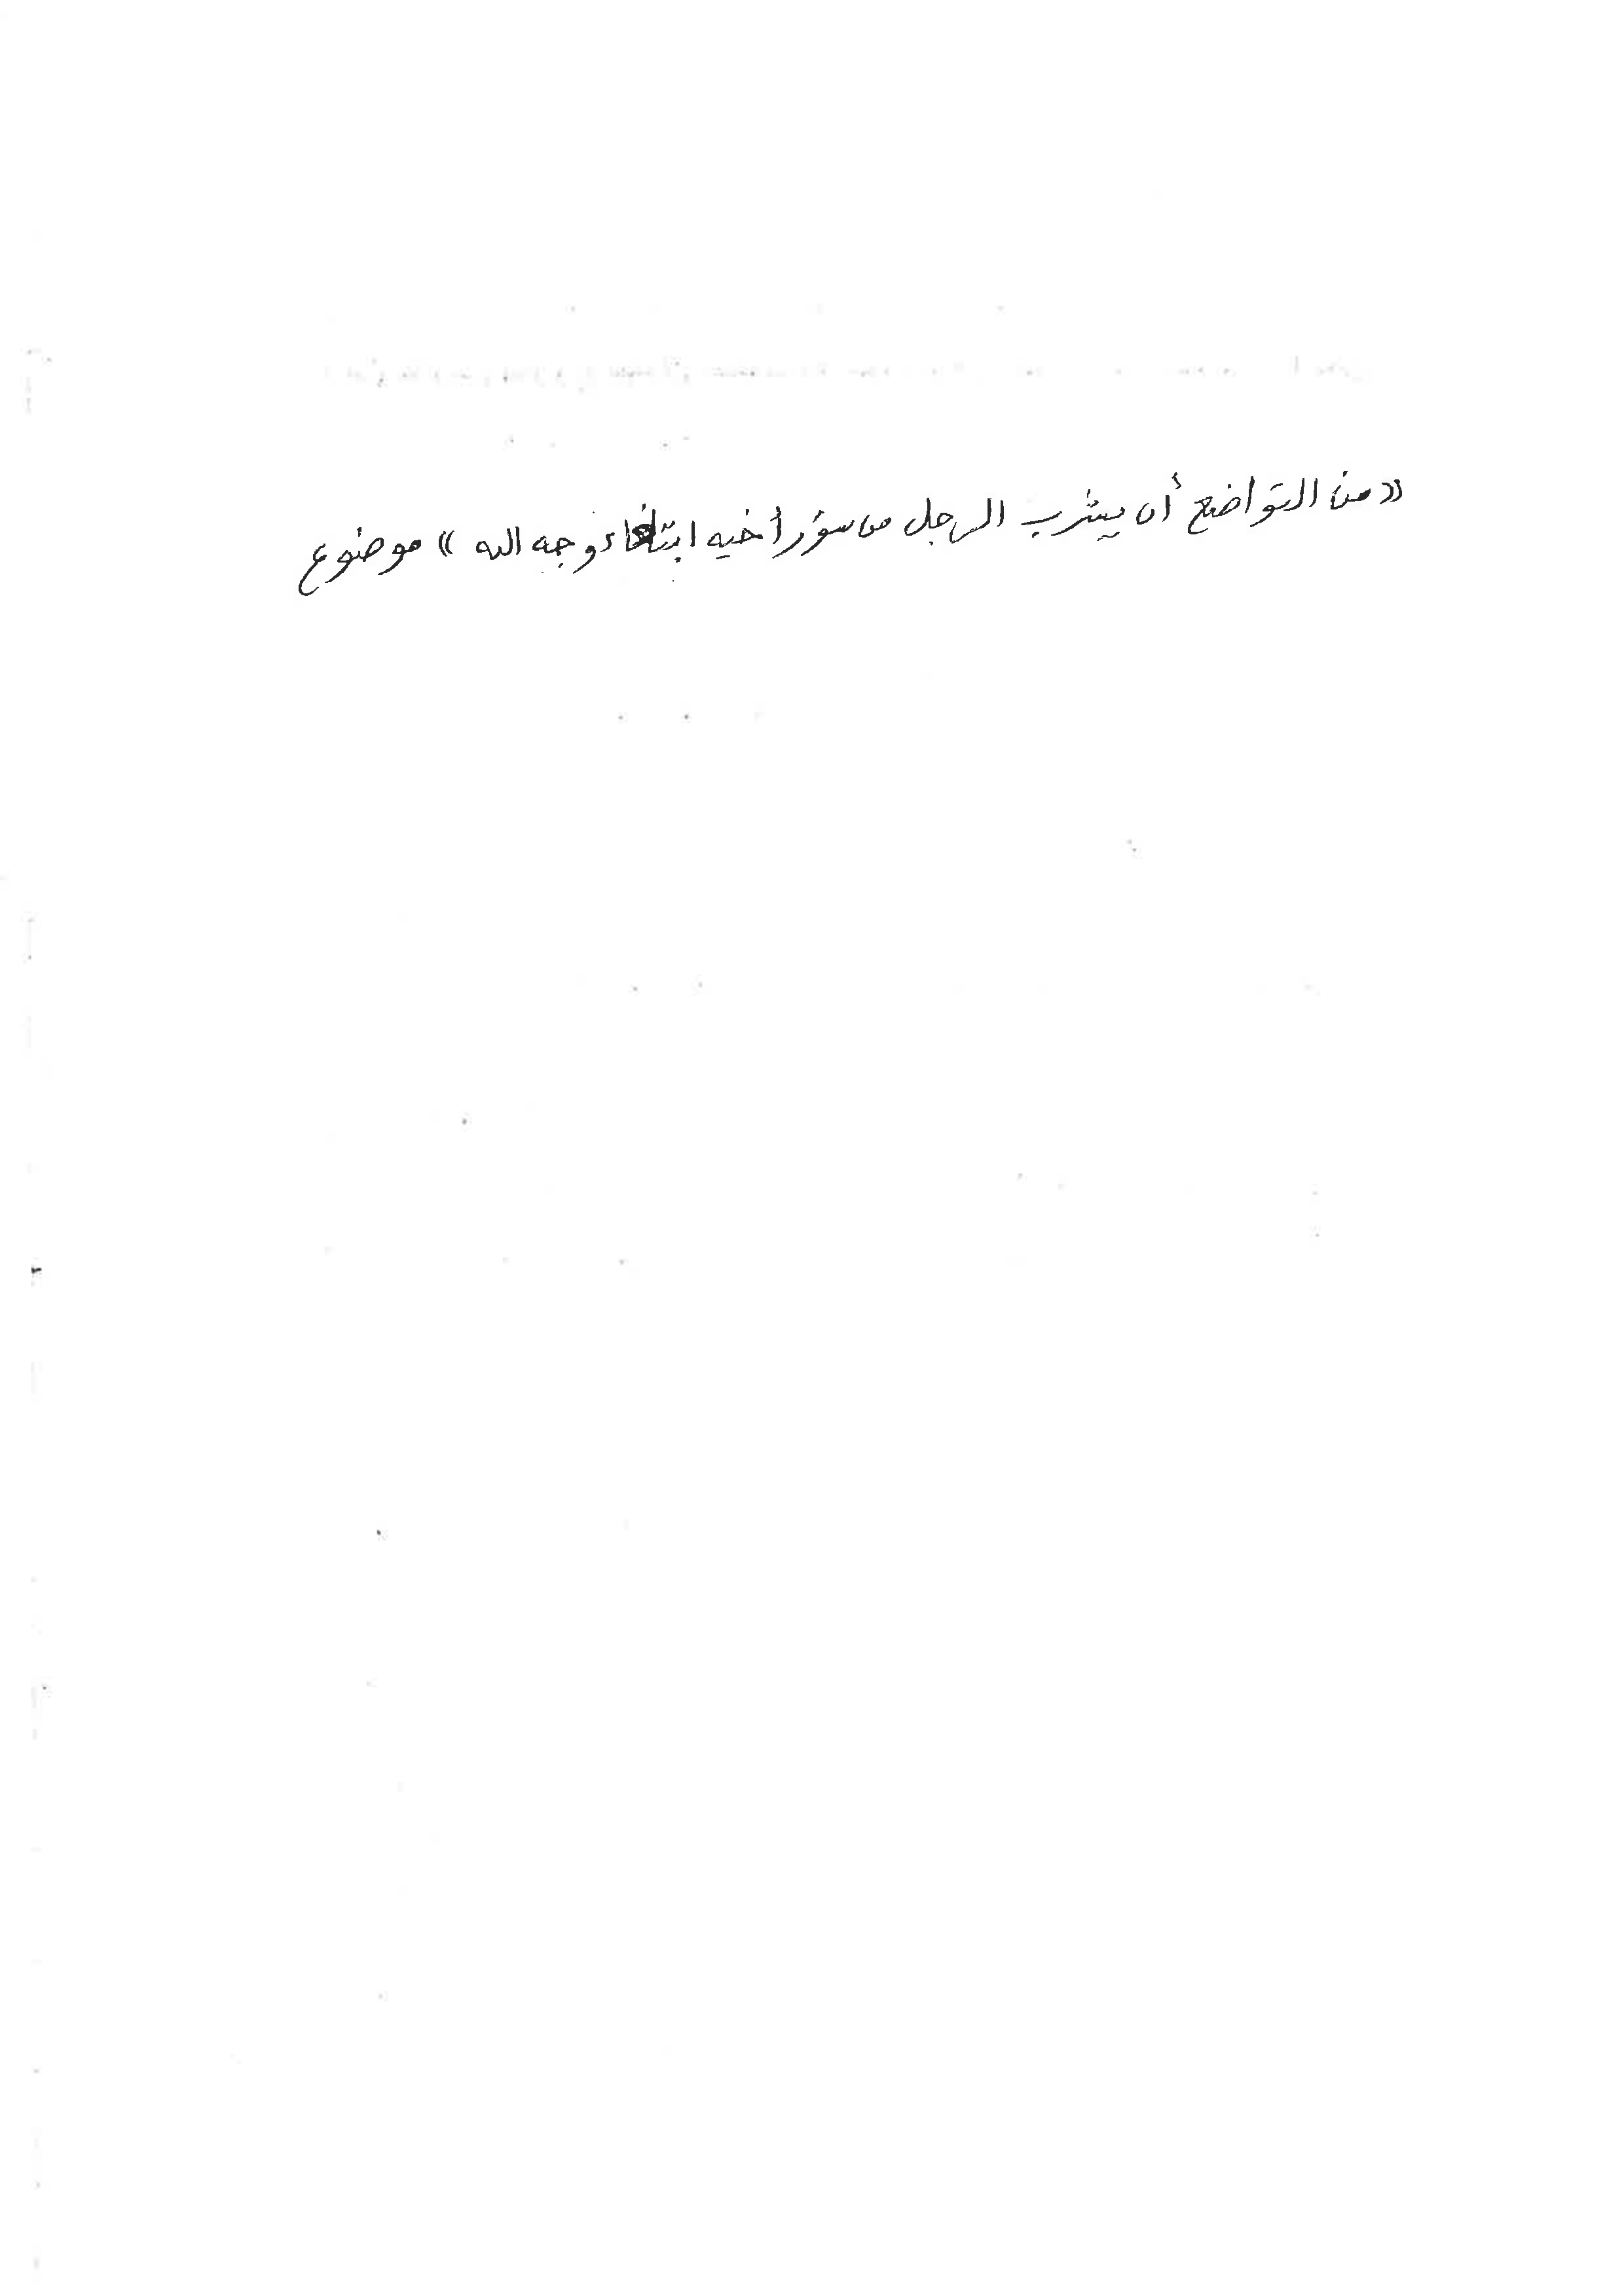 «من التواضع أن يشرب الرجل من سؤر أخيه ابتغاء وجه الله» موضوع